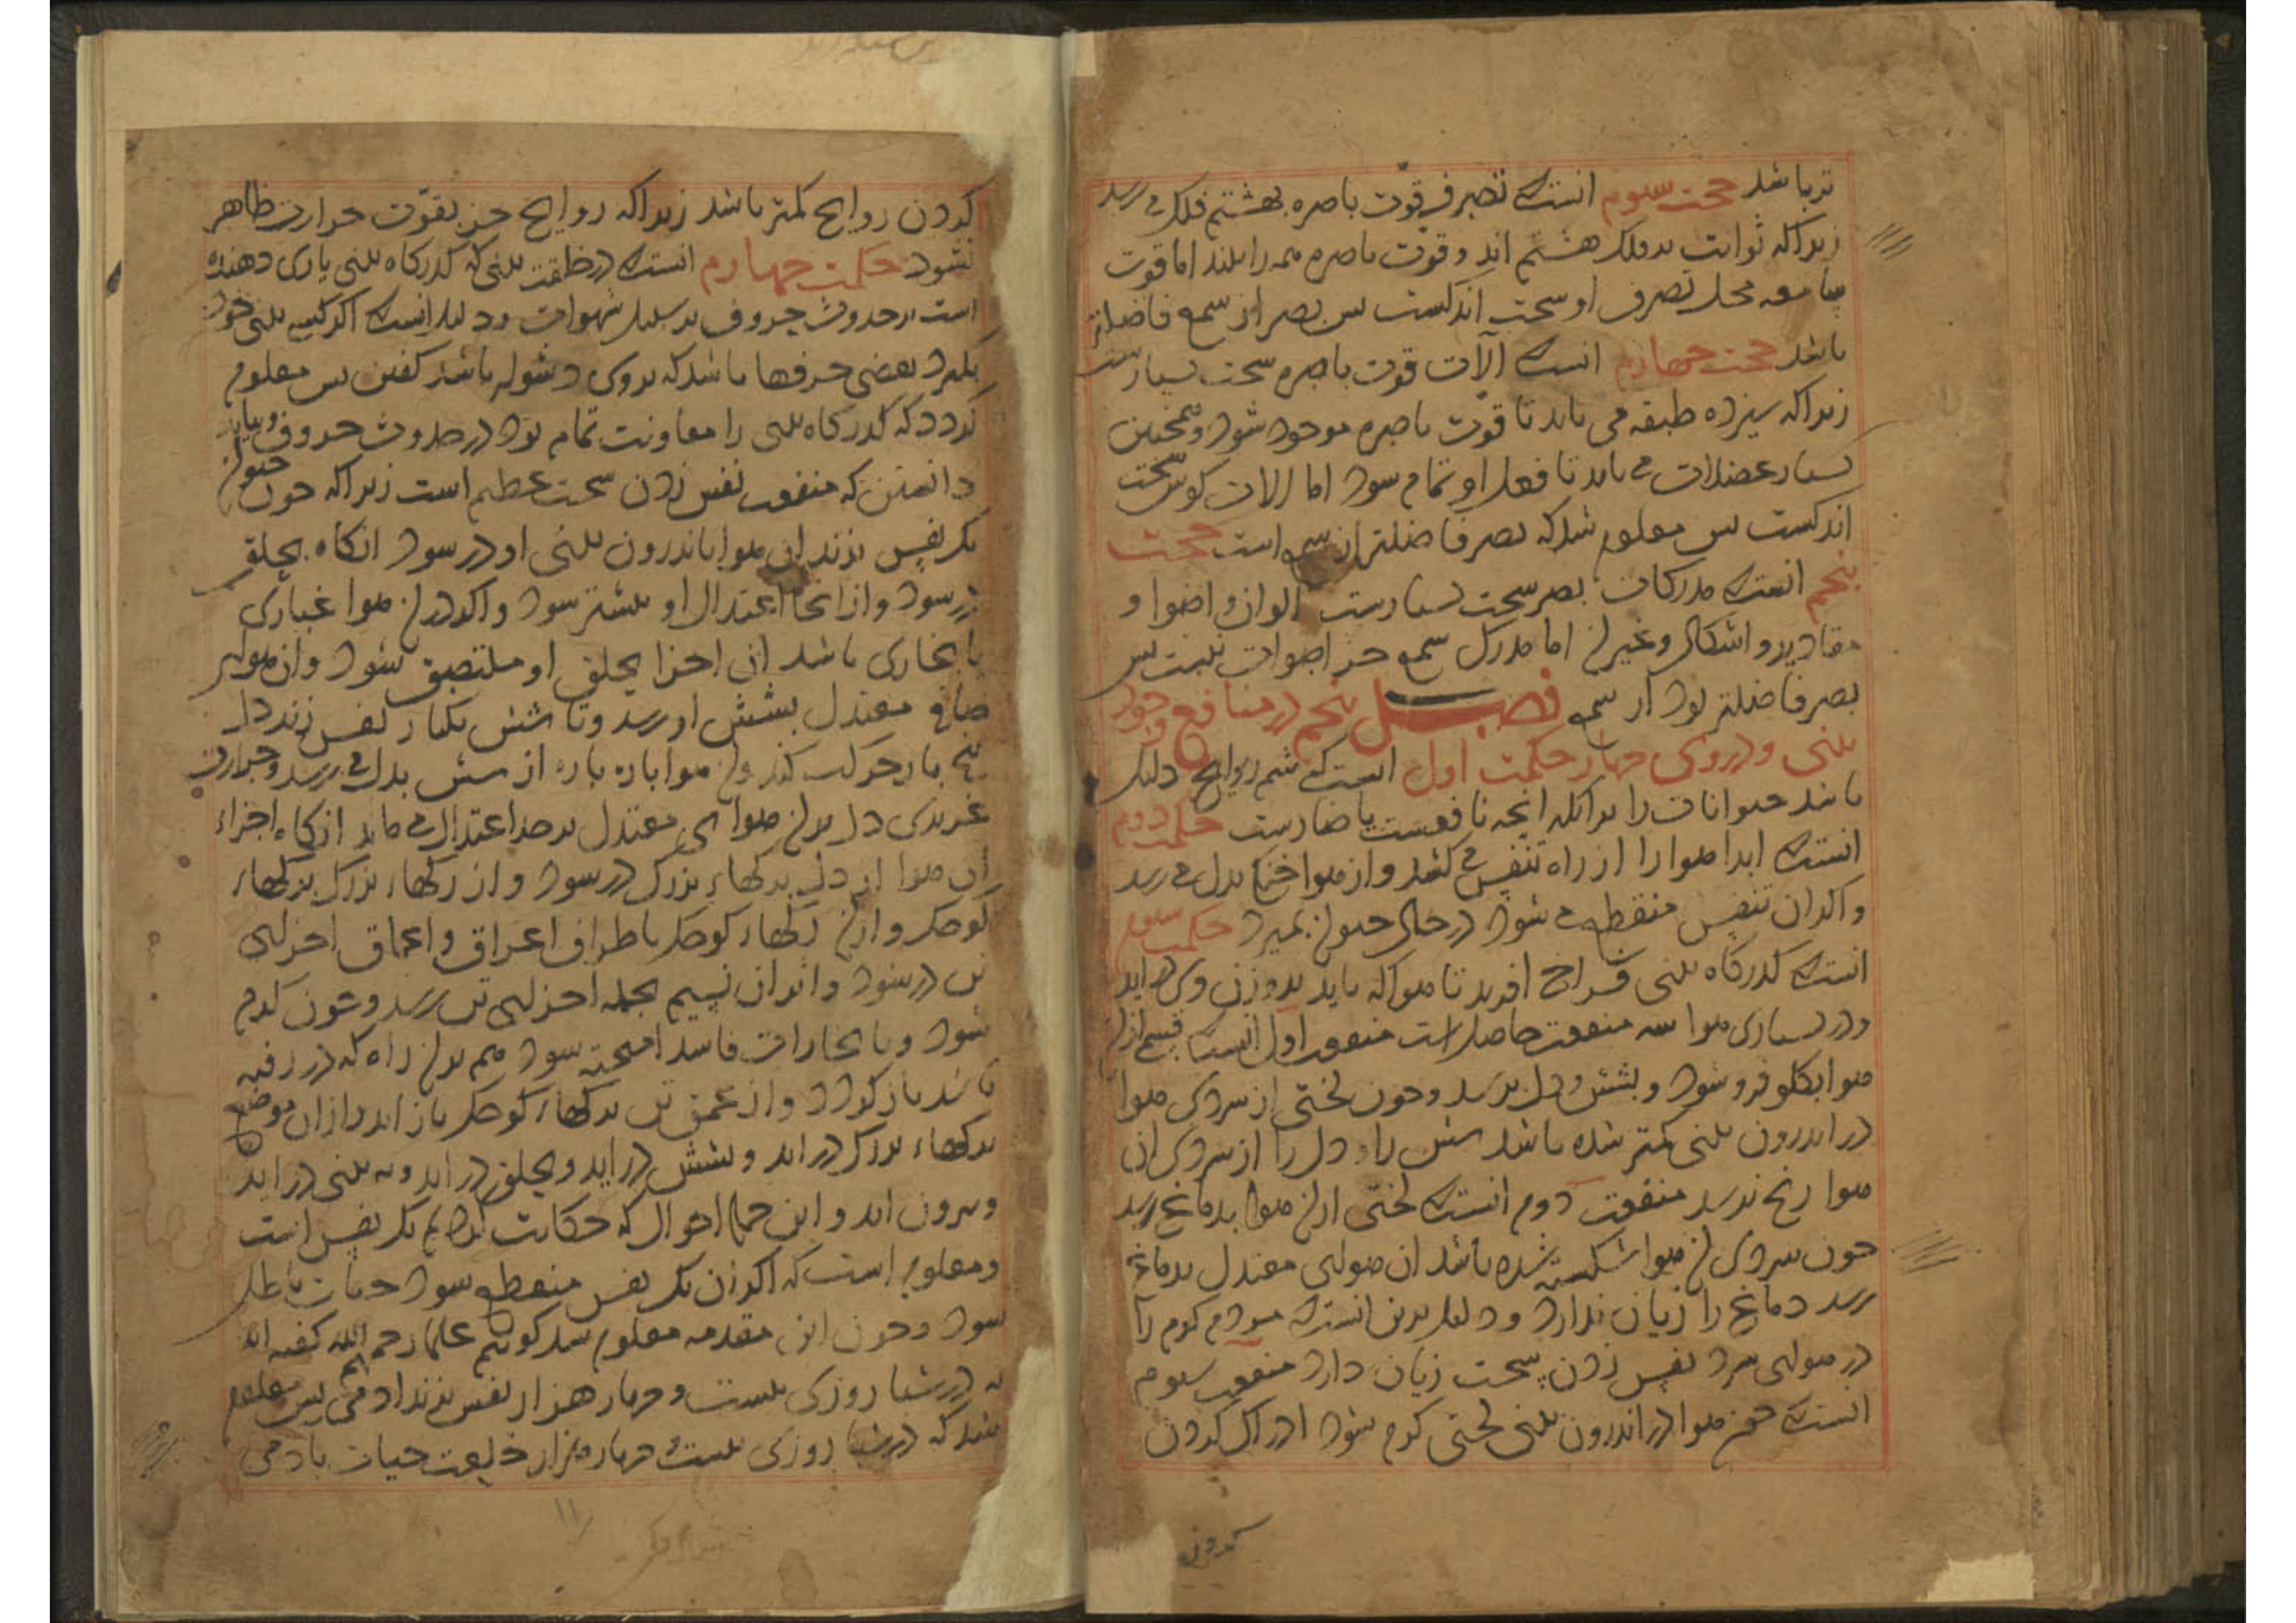 تر باشد حجت سوم انست که تصرف قوت باصره بهشتم فلک می رسد
زیرا که ثوابت بر فلک هشتم اند و قوت باصره همه را بیند اما قوت
سامعه محل تصرف او سخت اندکست پس بصر از سمع فاضلتر
باشد حجت چهارم انست که آلات قوت باصره سخت بسیارست
زیرا که سیزده طبقه می باید تا قوت باصره موجود شود و همچنین
بسیار عضلات می باید تا فعل او تمام شود اما الات گوش سخت
اندکست پس معلوم شد که بصر فاضلتر از سمع است حجت
پنجم انست که مدرکات بصر سخت بسیارست الوان و اضوا و
مقادیر و اشکال و غیر ان اما مدرک سمع جز اصوات نیست پس
بصر فاضلتر بود از سمع فصل پنجم در منافع وجود
بینی و در وی چهار حکمت اول انست که شم روایح دلیل
باشد حیوانات را برانکه انچه نافعست یا ضارست حکمت دوم
انست که ابدا هوا را از راه تنفس می کشد و از هوا خنکی بدل می رسد
و اگر ان تنفس منقطع می شود در حال حیوان بمیرد حکمت سوم
انست که گذرگاه بینی فراخ افرید تا هوا که باید بدو زن وی در اید
و در بسیاری هوا سه منفعت حاصل است منفعت اول انست که قسم از ان
هوا بگلو فرو شود و بشش و دل برسد و چون لختی از سردی هوا
در اندرون بینی کمتر شده باشد شش را و دل را از سردی ان
هوا رنج نرسد منفعت دوم انست که لختی از ان هوا بدماغ رسد
چون سردی ان هوا شکسته شده باشد ان هوای معتدل بدماغ
رسد دماغ را زیان ندارد و دلیل برین انست که مردم گرم را
در هوای سرد نفس زدن سخت زیان دارد منفعت سوم
انست که چون هوا در اندرون بینی لختی گرم شود ادراک کردن
کردن
کردن روایح کمتر باشد زیرا که روایح جز بقوت حرارت ظاهر
نشود حکمت چهارم انست که در خلقت بینی که گذرگاه بینی یاری دهنده
است بر حدوث حروف بر سبیل شهوات و دلیل انست که اگر کسی بینی خود
بگیرد بعضی حرفها باشد که بر وی دشوار باشد گفتن پس معلوم
گردد که گذرگاه بینی را معاونت تمام بود در حدوث حروف و بباید
دانستن که منفعت نفس زدن سخت عظیم است زیرا که چون حیوان
یک نفس بزند ان هوا باندرون بینی او در شود انگاه بحلق
در شود و از انجا اعتدال او بیشتر شود و اگر در ان هوا غباری
یا بخاری باشد ان اجزا بحلق او ملتصق شود و ان هوای
صافی معتدل بشش او رسد و تا شش یکبار نفس زند دل
پنج بار حرکت کند و ان هوا باره باره از شش بدل می رسد و حرارت
غریزی دل بدان هوای معتدل بر حد اعتدال می ماند انگاه اجزاء
ان هوا از دل برگهاء بزرگ در شود و از رگهاء بزرگ برگهاء
کوچک و از ان رگهاء کوچک باطراف اعراق و اعماق اجزای
تن در شود و اثر ان نسیم بجمله اجزای تن رسد و چون گرم
شود و با بخارات فاسد امیخته شود هم بدان راه که در رفته
باشد باز گردد و از عمق تن برگهاء کوچک باز اید و از ان موضع
برگهاء بزرگ در اید و بشش در اید و بحلق در اید و به بینی در اید
و بیرون اید و این جمله احوال که حکایت کردیم یک نفس است
و معلوم است که اگر ان یک نفس منقطع شود حیات باطل
شود و چون این مقدمه معلوم شد گوییم علما رحمهم الله گفته اند
که در شبا روزی بیست و چهار هزار نفس بزند ادمی پس معلوم
شد که در شبا روزی بیست و چهار هزار خلعت حیات بادمی
۱۱